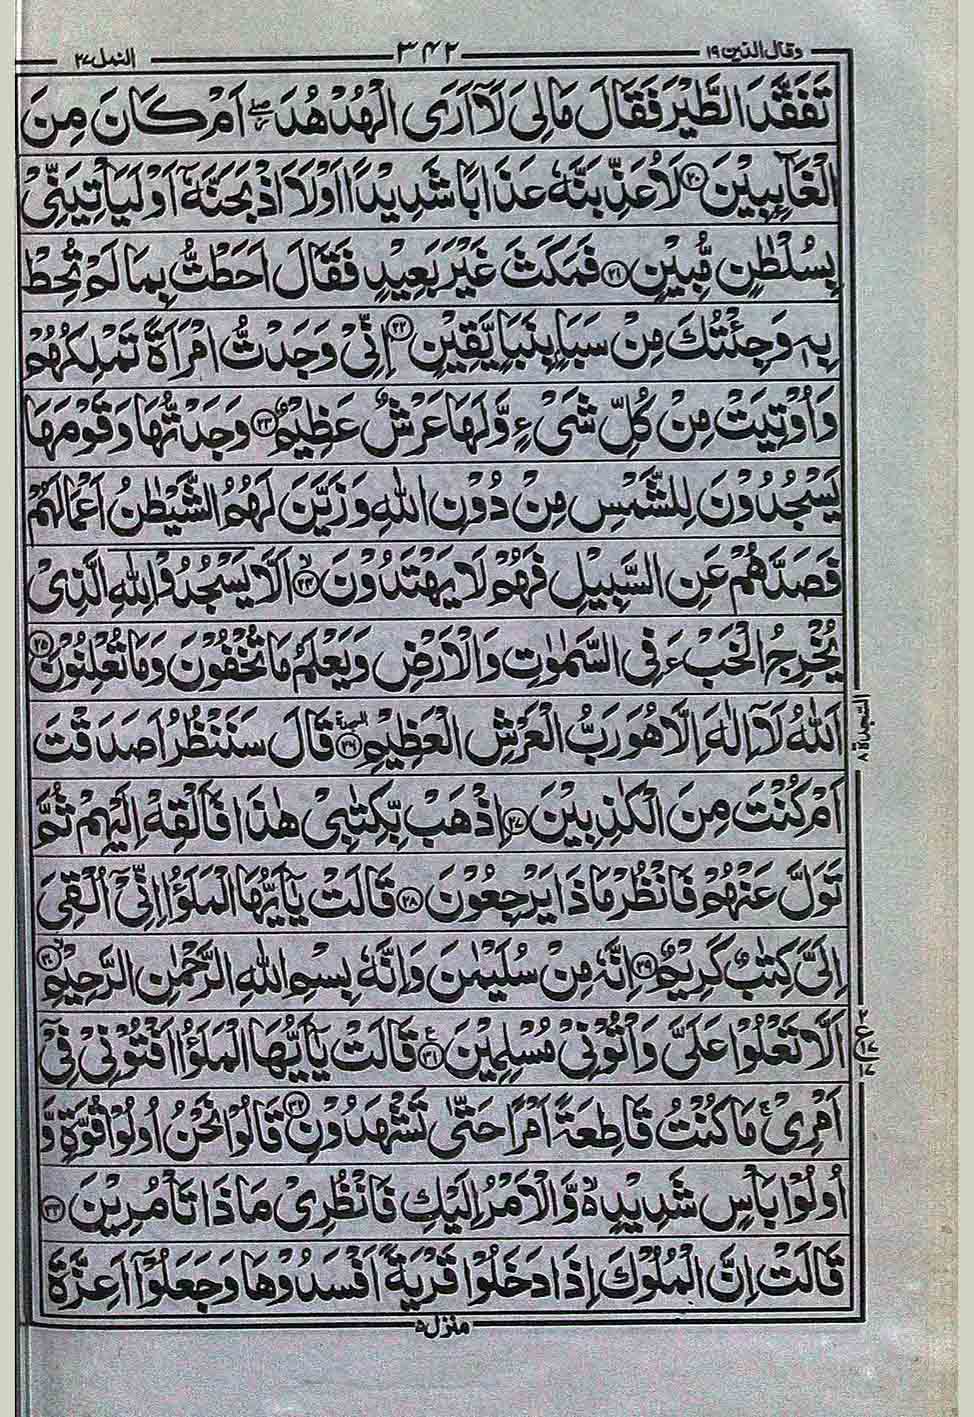 وقال الذين ١٩ ٣٤٢ النمل ٢٧
تَفَقَّدَ الطَّيْرَ فَقَالَ مَا لِيَ لَآ اَرَى الْهُدْهُدَ ۖ اَمْ كَانَ مِنَ
الْغَآىِٕبِيْنَ ﴿۲۰﴾ لَاُعَذِّبَنَّهٗ عَذَابًا شَدِيْدًا اَوْ لَاَاذْبَحَنَّهٗٓ اَوْ لَيَاْتِيَنِّيْ
بِسُلْطٰنٍ مُّبِيْنٍ ﴿۲۱﴾ فَمَكَثَ غَيْرَ بَعِيْدٍ فَقَالَ اَحَطْتُّ بِمَا لَمْ تُحِطْ
بِهٖ وَجِئْتُكَ مِنْ سَبَاٍۭ بِنَبَاٍ يَّقِيْنٍ ﴿۲۲﴾ اِنِّيْ وَجَدْتُّ امْرَاَةً تَمْلِكُهُمْ
وَاُوْتِيَتْ مِنْ كُلِّ شَيْءٍ وَّلَهَا عَرْشٌ عَظِيْمٌ ﴿۲۳﴾ وَجَدْتُّهَا وَقَوْمَهَا
يَسْجُدُوْنَ لِلشَّمْسِ مِنْ دُوْنِ اللّٰهِ وَزَيَّنَ لَهُمُ الشَّيْطٰنُ اَعْمَالَهُمْ
فَصَدَّهُمْ عَنِ السَّبِيْلِ فَهُمْ لَا يَهْتَدُوْنَ ﴿۲۴﴾ اَلَّا يَسْجُدُوْا لِلّٰهِ الَّذِيْ
يُخْرِجُ الْخَبْءَ فِي السَّمٰوٰتِ وَالْاَرْضِ وَيَعْلَمُ مَا تُخْفُوْنَ وَمَا تُعْلِنُوْنَ ﴿۲۵﴾
اَللّٰهُ لَآ اِلٰهَ اِلَّا هُوَ رَبُّ الْعَرْشِ الْعَظِيْمِ ﴿۲۶﴾ السجدة قَالَ سَنَنْظُرُ اَصَدَقْتَ
السجدة ٨
اَمْ كُنْتَ مِنَ الْكٰذِبِيْنَ ﴿۲۷﴾ اِذْهَبْ بِّكِتٰبِيْ هٰذَا فَاَلْقِهْ اِلَيْهِمْ ثُمَّ
تَوَلَّ عَنْهُمْ فَانْظُرْ مَاذَا يَرْجِعُوْنَ ﴿۲۸﴾ قَالَتْ يٰٓاَيُّهَا الْمَلَؤُا اِنِّيْٓ اُلْقِيَ
اِلَيَّ كِتٰبٌ كَرِيْمٌ ﴿۲۹﴾ اِنَّهٗ مِنْ سُلَيْمٰنَ وَاِنَّهٗ بِسْمِ اللّٰهِ الرَّحْمٰنِ الرَّحِيْمِ ﴿۳۰﴾
اَلَّا تَعْلُوْا عَلَيَّ وَاْتُوْنِيْ مُسْلِمِيْنَ ﴿۳۱﴾ ع قَالَتْ يٰٓاَيُّهَا الْمَلَؤُا اَفْتُوْنِيْ فِيْٓ
اَمْرِيْ ۚ مَا كُنْتُ قَاطِعَةً اَمْرًا حَتّٰى تَشْهَدُوْنِ ﴿۳۲﴾ قَالُوْا نَحْنُ اُولُوْا قُوَّةٍ وَّ
اُولُوْا بَاْسٍ شَدِيْدٍ ۙ وَّالْاَمْرُ اِلَيْكِ فَانْظُرِيْ مَاذَا تَاْمُرِيْنَ ﴿۳۳﴾
قَالَتْ اِنَّ الْمُلُوْكَ اِذَا دَخَلُوْا قَرْيَةً اَفْسَدُوْهَا وَجَعَلُوْٓا اَعِزَّةَ
منزل ٥